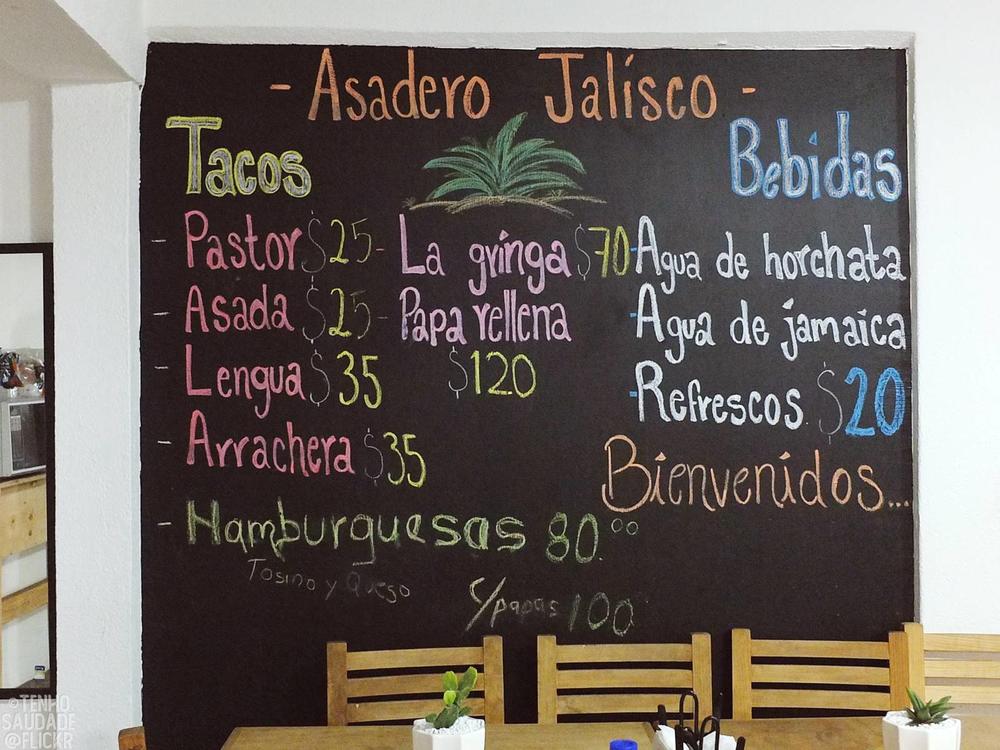 - Asadero Jalisco -
Tacos
- Pastor $25
- Asada $25
- Lengua $35
- Arrachera $35
- La gringa $70
- Papa rellena
$120
Bebidas
- Agua de horchata
- Agua de jamaica
- Refrescos $20
Bienvenidos...
- Hamburguesas 80.00
Tosino y Queso
c/papas 100
©TENHO
SAUDADE
@FLICKR